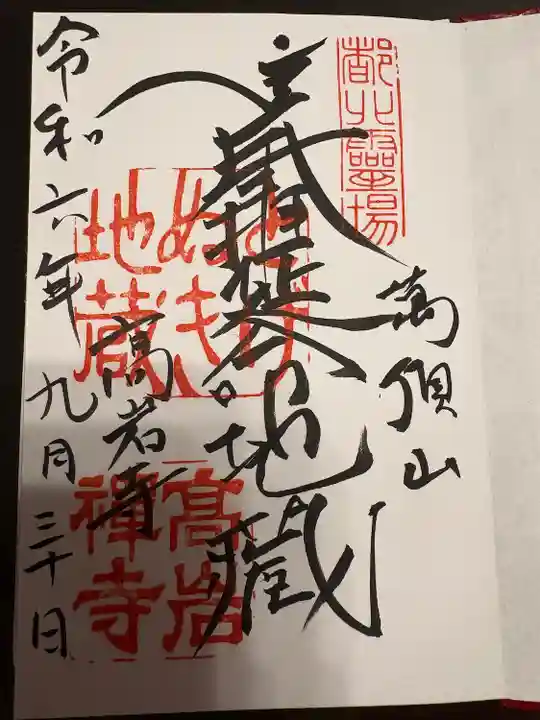 都北霊場
萬頂山
地蔵
とげぬき
地蔵
高岩寺
高岩
禅寺
令和六年九月三十日